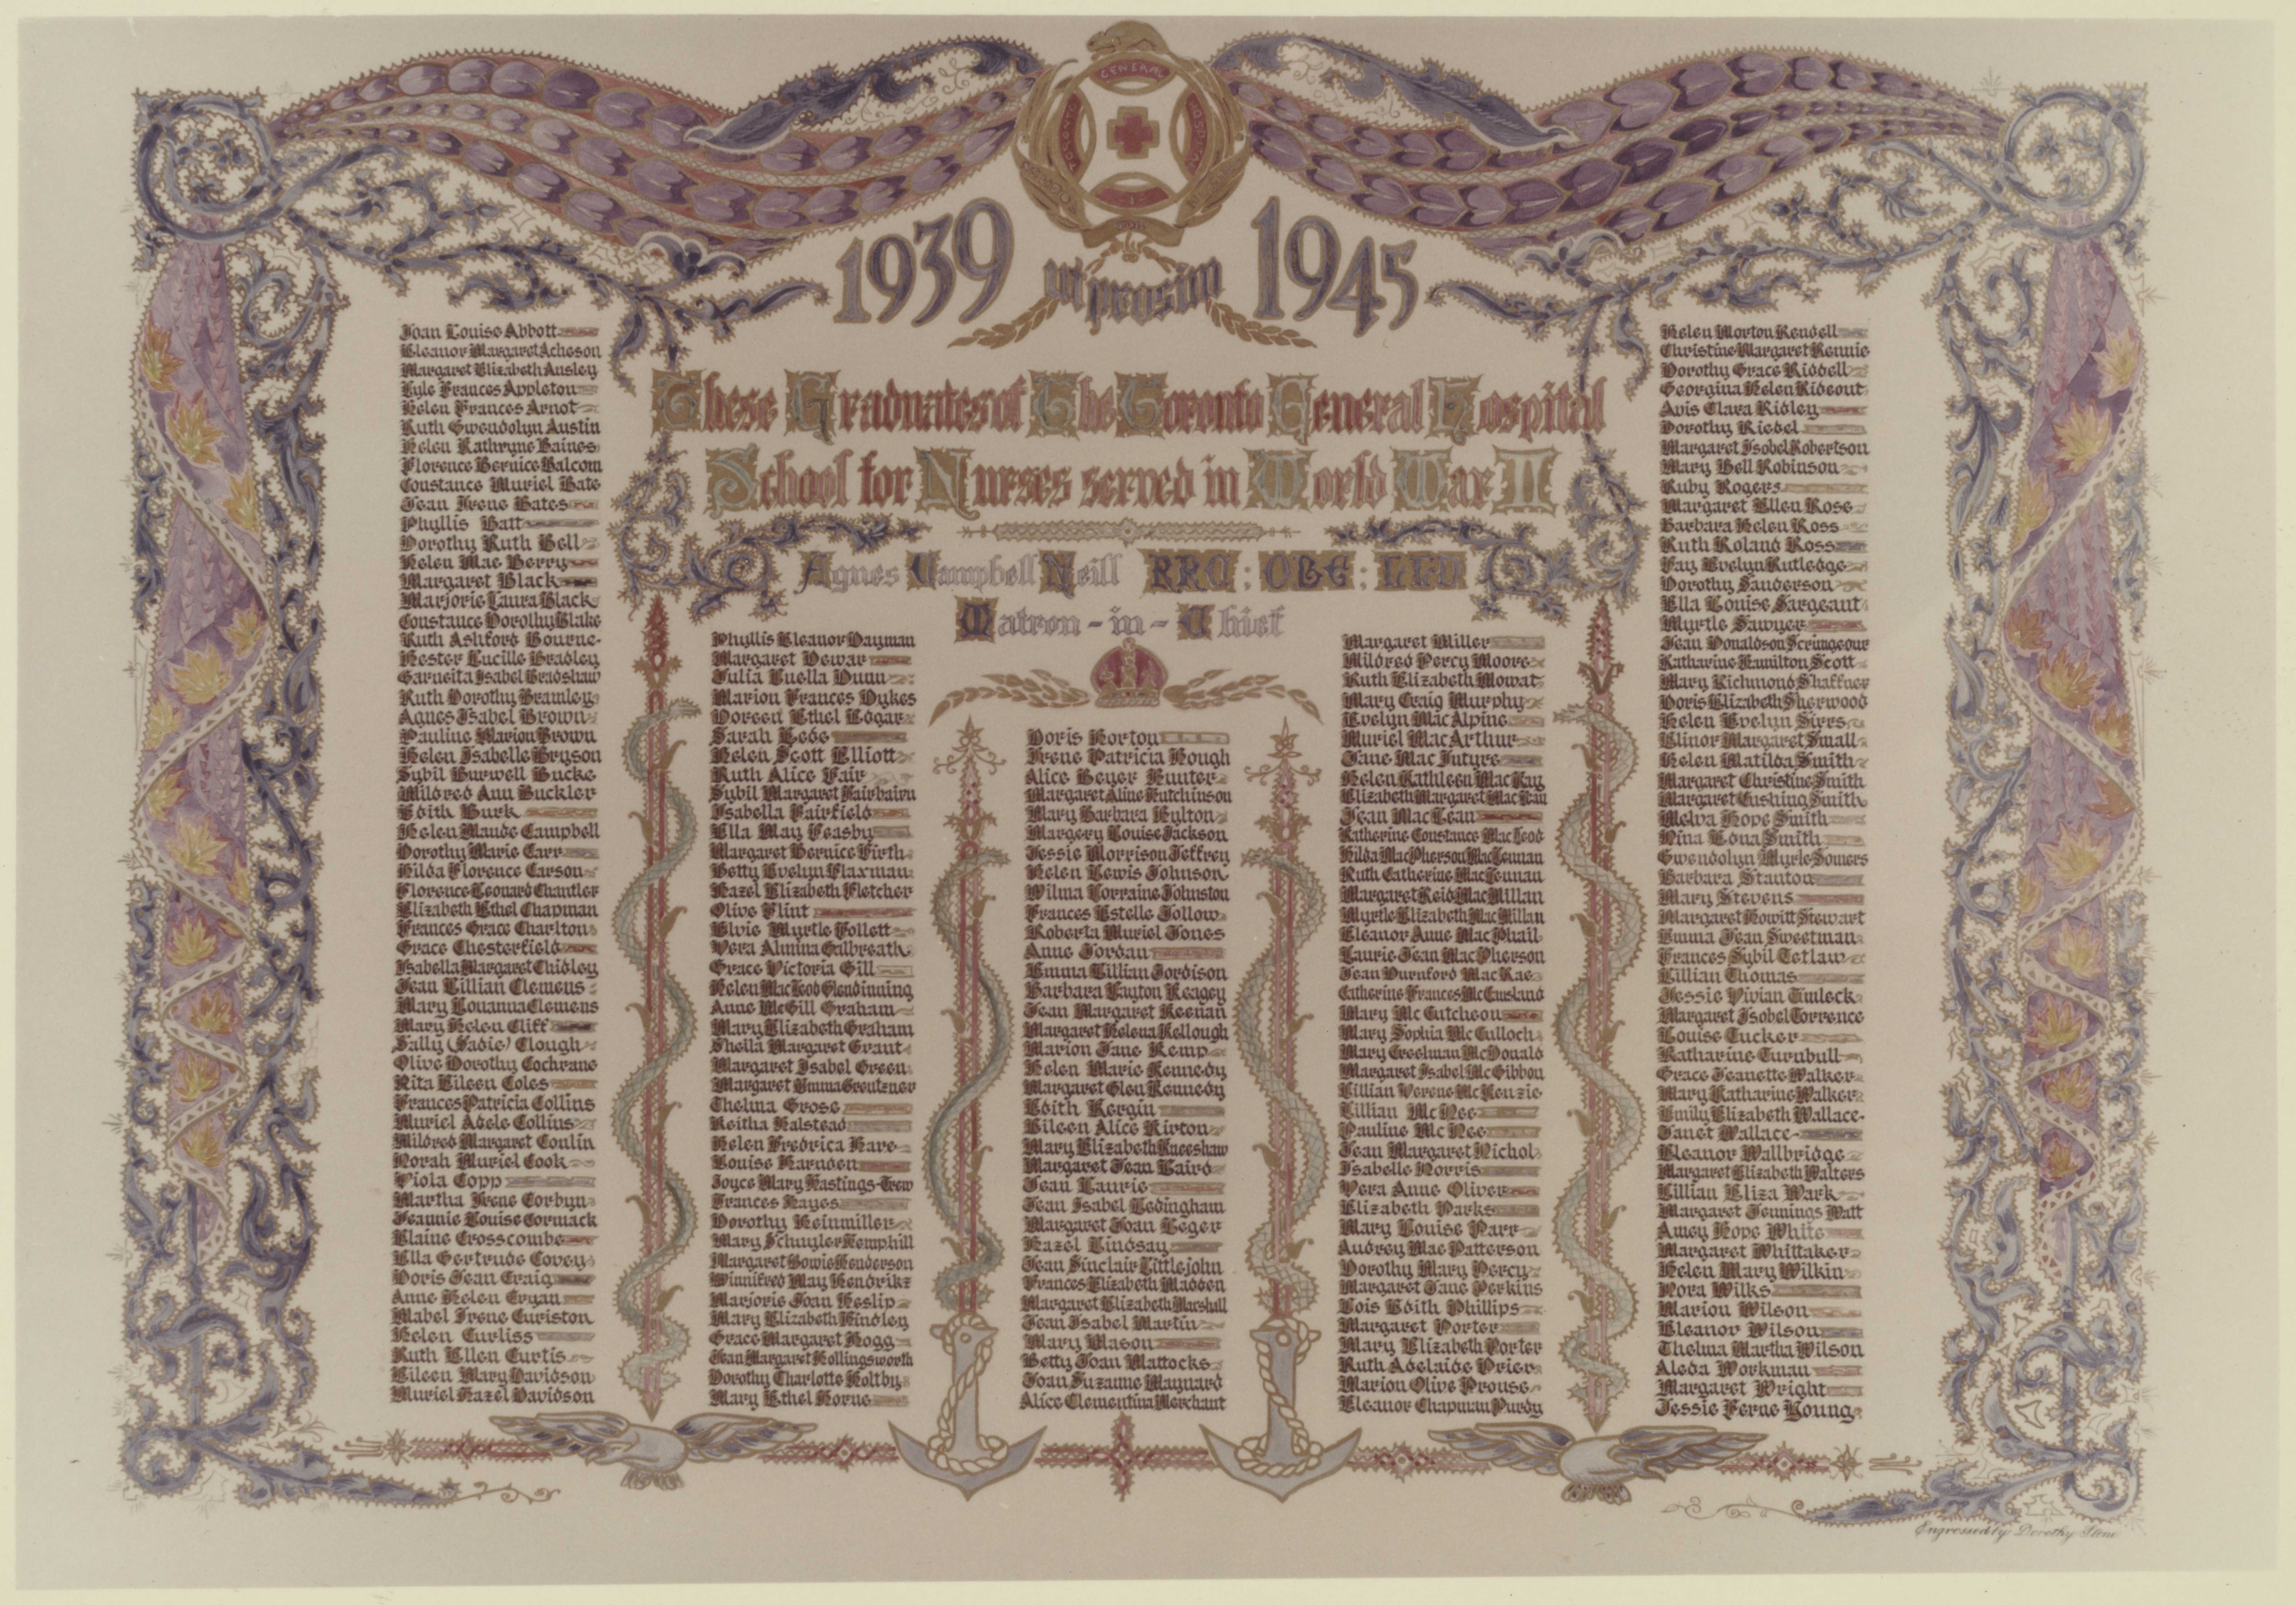 GENERAL
TORONTO
HOSPITAL
1939
ut prosim
1945
These Graduates of The Toronto General Hospital
School for Nurses served in World War II
Agnes Campbell Neill RRC : OBE : LLD
Matron-in-Chief
Joan Louise Abbott
Eleanor Margaret Acheson
Margaret Elizabeth Ansley
Lyle Frances Appleton
Helen Frances Arnot
Ruth Gwendolyn Austin
Helen Kathryne Baines
Florence Bernice Balcom
Constance Muriel Bate
Jean Irene Bates
Phyllis Batt
Dorothy Ruth Bell
Helen Mae Berry
Margaret Black
Marjorie Laura Black
Constance Dorothy Blake
Ruth Ashford Bourne
Hester Lucille Bradley
Garneita Isabel Bradshaw
Ruth Dorothy Bramley
Agnes Isabel Brown
Pauline Marion Brown
Helen Isabelle Bryson
Sybil Burwell Bucke
Mildred Ann Buckler
Edith Burk
Helen Maude Campbell
Dorothy Marie Carr
Hilda Florence Carson
Florence Leonard Chantler
Elizabeth Ethel Chapman
Frances Grace Charlton
Grace Chesterfield
Isabella Margaret Chidley
Jean Lillian Clemens
Mary Louanna Clemens
Mary Helen Cliff
Sally (Sadie) Clough
Olive Dorothy Cochrane
Rita Eileen Coles
Frances Patricia Collins
Muriel Adele Collins
Mildred Margaret Conlin
Norah Muriel Cook
Viola Copp
Martha Irene Corbyn
Jeannie Louise Cormack
Elaine Crosscombe
Ella Gertrude Covey
Doris Jean Craig
Anne Helen Cryan
Mabel Irene Curiston
Helen Curliss
Ruth Ellen Curtis
Eileen Mary Davidson
Muriel Hazel Davidson
Phyllis Eleanor Dayman
Margaret Dewar
Julia Luella Dunn
Marion Frances Dykes
Doreen Ethel Edgar
Sarah Eede
Helen Scott Elliott
Ruth Alice Fair
Sybil Margaret Fairbairn
Isabella Fairfield
Ella May Feasby
Margaret Bernice Firth
Betty Evelyn Flaxman
Hazel Elizabeth Fletcher
Olive Flint
Elvie Myrtle Follett
Vera Almina Galbreath
Grace Victoria Gill
Helen MacLeod Glendinning
Anne McGill Graham
Mary Elizabeth Graham
Sheila Margaret Grant
Margaret Isabel Green
Margaret Emma Greutzner
Thelma Grose
Keitha Halstead
Helen Fredrica Hare
Louise Harnden
Joyce Mary Hastings-Trew
Frances Hayes
Dorothy Heinmiller
Mary Schuyler Hemphill
Margaret Bowie Henderson
Winnifred May Hendrikz
Marjorie Joan Heslip
Mary Elizabeth Hindley
Grace Margaret Hogg
Jean Margaret Hollingsworth
Dorothy Charlotte Holtby
Mary Ethel Horne
Doris Horton
Irene Patricia Hough
Alice Beyer Hunter
Margaret Aline Hutchinson
Mary Barbara Hylton
Margery Louise Jackson
Jessie Morrison Jeffrey
Helen Lewis Johnson
Wilma Lorraine Johnston
Frances Estelle Jollow
Roberta Muriel Jones
Anne Jordan
Emma Lillian Jordison
Barbara Layton Keagey
Jean Margaret Keenan
Margaret Helena Kellough
Marion Jane Kemp
Helen Marie Kennedy
Margaret Glen Kennedy
Edith Kergin
Eileen Alice Kirton
Mary Elizabeth Kneeshaw
Margaret Jean Laird
Jean Laurie
Jean Isabel Ledingham
Margaret Joan Leger
Hazel Lindsay
Jean Sinclair Littlejohn
Frances Elizabeth Madden
Margaret Elizabeth Marshall
Jean Isabel Martin
Mary Mason
Betty Joan Mattocks
Joan Suzanne Maynard
Alice Clementina Merchant
Margaret Miller
Mildred Percy Moore
Ruth Elizabeth Mowat
Mary Craig Murphy
Evelyn MacAlpine
Muriel MacArthur
Jane MacIntyre
Helen Kathleen MacKay
Elizabeth Margaret MacKay
Jean MacLean
Katherine Constance MacLeod
Hilda MacPherson MacLennan
Ruth Catherine MacLennan
Margaret Reid MacMillan
Myrtle Elizabeth MacMillan
Eleanor Anne MacPhail
Laurie Jean MacPherson
Jean Durnford MacRae
Catherine Frances McCausland
Mary McCutcheon
Mary Sophia McCulloch
Mary Creelman McDonald
Margaret Isabel McGibbon
Lillian Verene McKenzie
Lillian McNee
Pauline McNee
Jean Margaret Nichol
Isabelle Norris
Vera Anne Oliver
Elizabeth Parks
Mary Louise Parr
Audrey Mae Patterson
Dorothy Mary Percy
Margaret Jane Perkins
Lois Edith Phillips
Margaret Porter
Mary Elizabeth Porter
Ruth Adelaide Prier
Marion Olive Prouse
Eleanor Chapman Purdy
Helen Morton Rendell
Christine Margaret Rennie
Dorothy Grace Riddell
Georgina Helen Rideout
Avis Clara Ridley
Dorothy Riedel
Margaret Isobel Robertson
Mary Bell Robinson
Ruby Rogers
Margaret Ellen Rose
Barbara Helen Ross
Ruth Roland Ross
Fay Evelyn Rutledge
Dorothy Sanderson
Ella Louise Sargeant
Myrtle Sawyer
Jean Donaldson Scrimgeour
Katharine Hamilton Scott
Mary Richmond Shaffner
Doris Elizabeth Sherwood
Helen Evelyn Sirrs
Elinor Margaret Small
Helen Matilda Smith
Margaret Christine Smith
Margaret Cushing Smith
Melva Hope Smith
Nina Edna Smith
Gwendolyn Myrle Somers
Barbara Stanton
Mary Stevens
Margaret Howitt Stewart
Emma Jean Sweetman
Frances Sybil Tetlaw
Lillian Thomas
Jessie Vivian Timleck
Margaret Isobel Torrence
Louise Tucker
Katharine Turnbull
Grace Jeanette Walker
Mary Katharine Walker
Emily Elizabeth Wallace
Janet Wallace
Eleanor Wallbridge
Margaret Elizabeth Walters
Lillian Eliza Wark
Margaret Jennings Watt
Amey Hope White
Margaret Whittaker
Helen Mary Wilkin
Nora Wilks
Marion Wilson
Eleanor Wilson
Thelma Martha Wilson
Aleda Workman
Margaret Wright
Jessie Ferne Young
Engrossed by Dorothy Stone